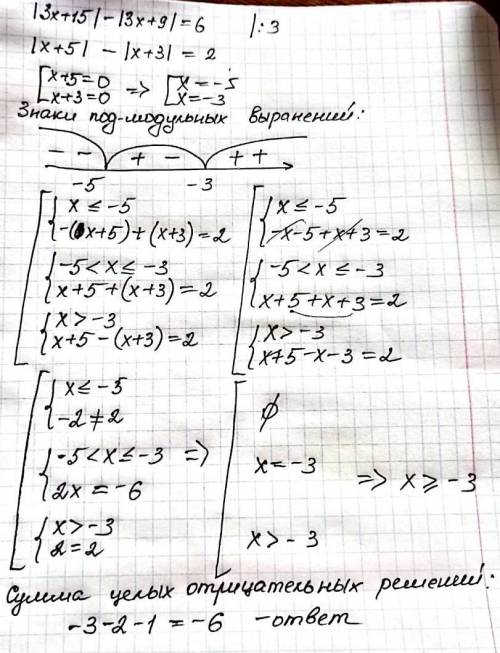 |3x+15|-|3x+9|=6 |:3
|x+5| - |x+3| = 2
[x+5=0 => [x=-5
[x+3=0 [x=-3
Знаки под-модульных выранений:
- - + - + +
-5 -3
{x ≤ -5
{-(x+5)+(x+3)=2
{-5<x≤-3
{x+5+(x+3)=2
{x>-3
{x+5-(x+3)=2
{x≤-5
{-x-5+x+3=2
{-5<x≤-3
{x+5+x+3=2
{x>-3
{x+5-x-3=2
{x≤-5
{-2≠2
{-5<x≤-3 =>
{2x=-6
{x>-3
{2=2
∅
x=-3
x>-3
=> x≥-3
Сумма целых отрицательных решений:
-3-2-1=-6 -ответ